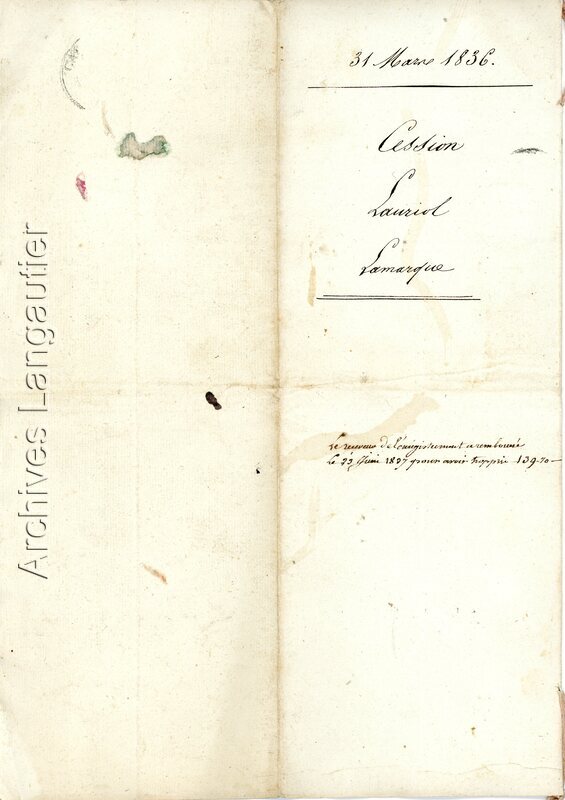 31 Mars 1836.
Cession
Lauriol
Lamarque
Le receveur de l'enregistrement a remboursé
le 23 Juin 1837 pour avoir trop pris 139-70-
Archives Langautier